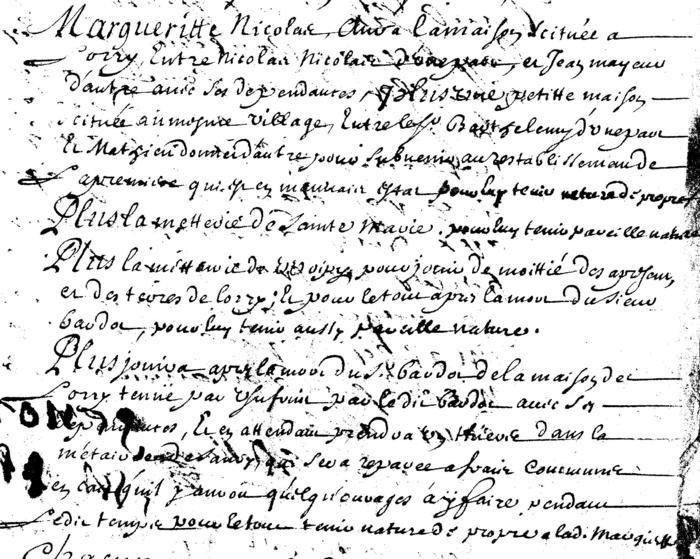 Margueritte Nicolas, Aura la maison scituée a
Lorry, Entre Nicolas Nicolais d'une part, et Jean mayeur
d'autre avec ses dependances, Plus une petitte maison
scituée au mesme village, Entre le Sr. Barthelemy d'une part
Et Mathieu donner d'autre pour subvenir au restablissemen de
La premiere qui est en mauvais estat pour luy tenir nature de propre
Plus la metterie de Sainte Marie. pour luy tenir pareille nature
Plus la mettairie de pour jouir de moittié des apresent
et des terres de Lorry; Et pour le tout apres la mort du Sieur
bardot, pour luy tenir aussy pareille nature.
Plus jouira apres la mort du Sr. bardot de la maison de
Lorry tenue par usufruit par ledit bardot avec ses
dependances, Et en attendant prendra dans la
qui sera reparee a frais Commune
en cas qu'il y auroit quelqu'ouvrages a y faire pendant
Ledit temps pour le tout tenir nature de propre a lad. Margueritte